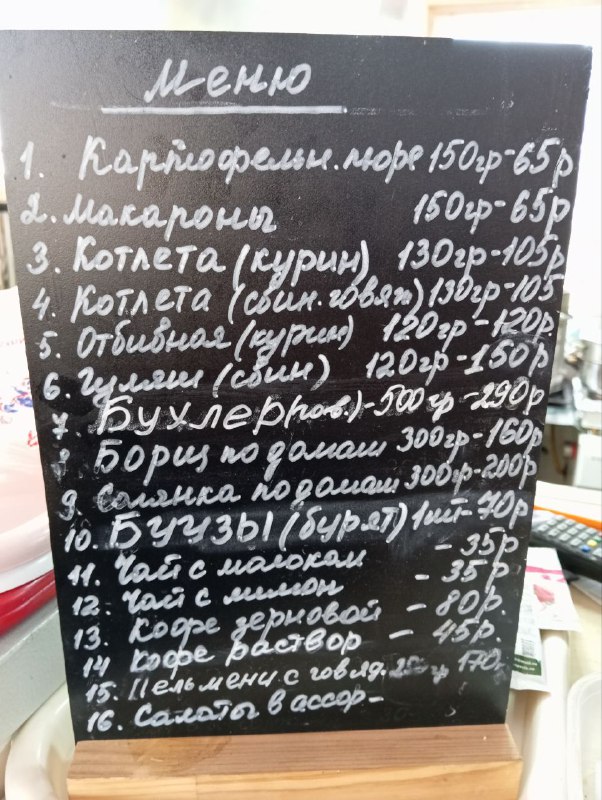 Меню
1. Картофельн. пюре 150гр-65р
2. Макароны 150гр-65р
3. Котлета (курин) 130гр-105р
4. Котлета (свин. говяж) 130гр-105
5. Отбивная (курин) 120гр-120р
6. Гуляш (свин) 120гр-150р
7. Бухлер (гов.)-500гр-290р
8 Борщ по домаш 300гр-160р
9. Солянка по домаш 300гр-200р
10. Буузы (бурят) 1шт-70р
11. Чай с молоком - 35р
12. Чай с лимон - 35р
13. Кофе зерновой - 80р.
14 Кофе раствор - 45р.
15. Пельмени с говяд. 170
16. Салаты в ассор-